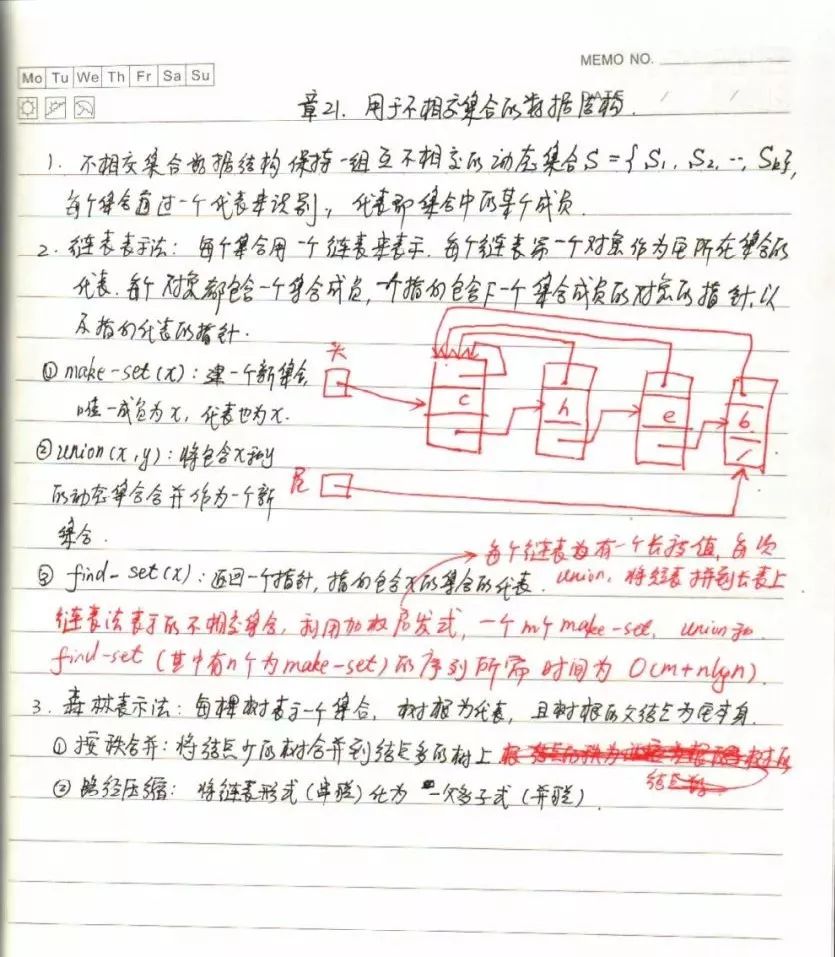 MEMO NO.
Mo Tu We Th Fr Sa Su
DATE / /
章21. 用于不相交集合的数据结构.
1. 不相交集合数据结构保持一组互不相交的动态集合S={S1, S2, …, Sk},
每个集合通过一个代表来识别, 代表即集合中的某个成员.
2. 链表表示法: 每个集合用一个链表来表示. 每个链表第一个对象作为它所在集合的
代表. 每个对象都包含一个集合成员, 一个指向包含下一个集合成员的对象的指针, 以
及指向代表的指针.
头
① make-set(x): 建一个新集合,
唯一成员为x, 代表也为x.
c h e b /
② union(x,y): 将包含x和y
的动态集合合并作为一个新
集合.
尾
每个链表设有一个长度值, 每次
③ find-set(x): 返回一个指针, 指向包含x的集合的代表.
union, 将短表拼到长表上
链表法表示的不相交集合, 利用加权启发式, 一个m个make-set, union和
find-set (其中有n个为make-set) 的序列所需时间为O(m+nlgn).
3. 森林表示法: 每棵树表示一个集合, 树根为代表, 且树根的父结点为它本身.
① 按秩合并: 将结点少的树合并到结点多的树上
树的
结点
② 路径压缩: 将链表形式(串联)化为一父多子式(并联)